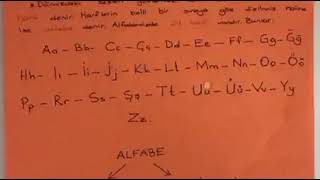 denir. Harflerin belli bir sıraya göre
denir. Alfabemizde 29 harf vardır. Bunlar;
Aa - Bb - Cc - Çç - Dd - Ee - Ff - Gg - Ğğ
Hh - Iı - İi - Jj - Kk - Ll - Mm - Nn - Oo - Öö
Pp - Rr - Ss - Şş - Tt - Uu - Üü - Vv - Yy
Zz.
ALFABE